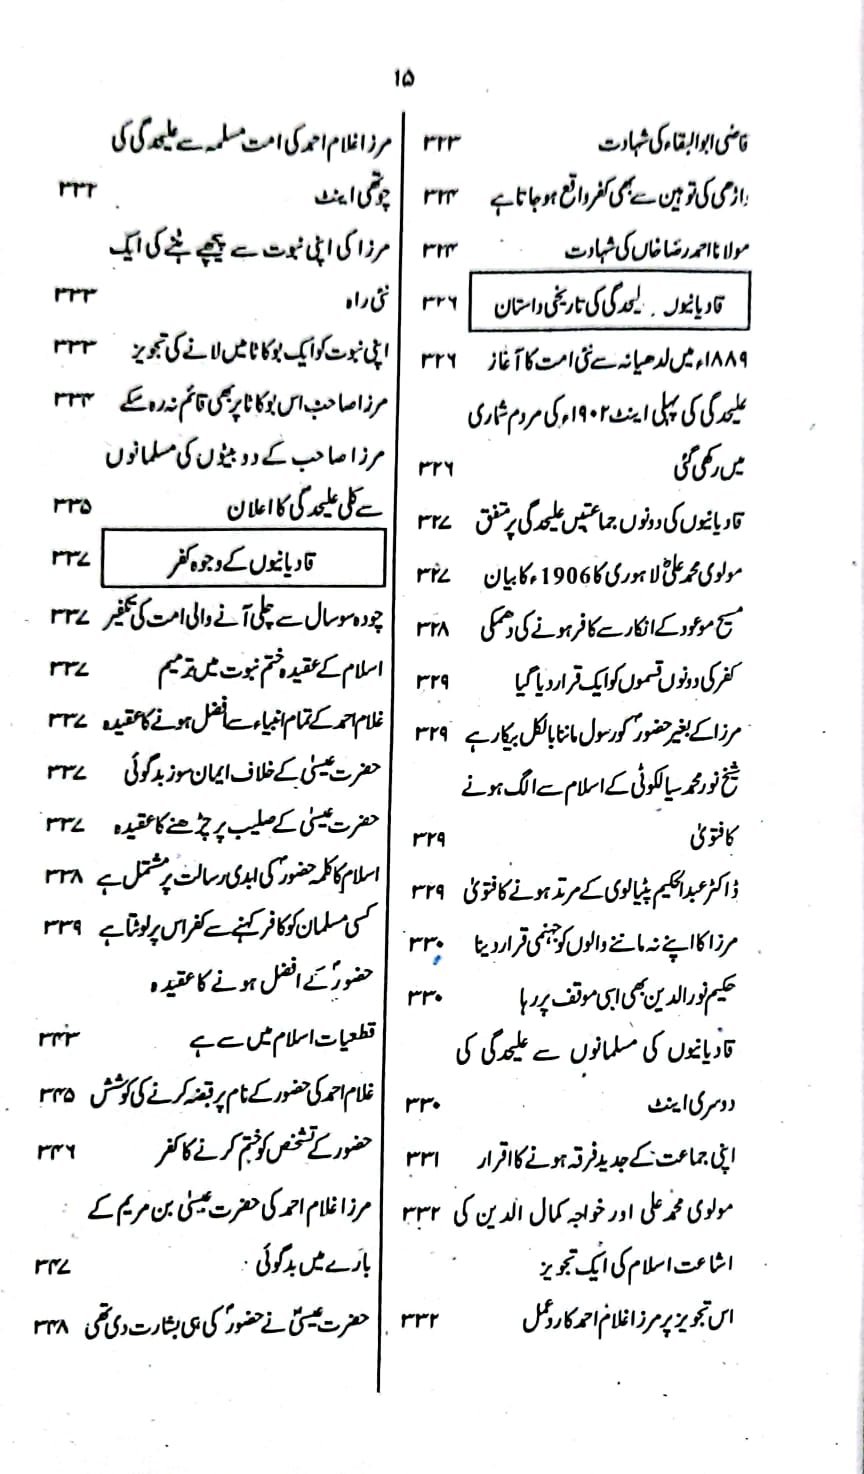 ۱۵
قاضی ابوالبقاء کی شہادت ۳۲۳
داڑھی کی توہین سے بھی کفر واقع ہو جاتا ہے ۳۲۴
مولانا احمد رضا خاں کی شہادت ۳۲۴
قادیانیوں . لیحدگی کی تاریخی داستان ۳۲۶
۱۸۸۹ء میں لدھیانہ سے نئی امت کا آغاز ۳۲۶
علیحدگی کی پہلی اینٹ ۱۹۰۲ء کی مردم شماری
میں رکھی گئی ۳۲۶
قادیانیوں کی دونوں جماعتیں علیحدگی پر متفق ۳۲۷
مولوی محمد علی لاہوری کا 1906ء کا بیان ۳۲۷
مسیح موعود کے انکار سے کافر ہونے کی دھمکی ۳۲۸
کفر کی دونوں قسموں کو ایک قرار دیا گیا ۳۲۹
مرزا کے بغیر حضورؐ کو رسول ماننا بالکل بیکار ہے ۳۲۹
شیخ نور محمد سیالکوٹی کے اسلام سے الگ ہونے
کا فتویٰ ۳۲۹
ڈاکٹر عبدالحکیم پٹیالوی کے مرتد ہونے کا فتویٰ ۳۲۹
مرزا کا اپنے نہ ماننے والوں کو جہنمی قرار دینا ۳۳۰
حکیم نور الدین بھی اسی موقف پر رہا ۳۳۰
قادیانیوں کی مسلمانوں سے علیحدگی کی
دوسری اینٹ ۳۳۰
اپنی جماعت کے جدید فرقہ ہونے کا اقرار ۳۳۱
مولوی محمد علی اور خواجہ کمال الدین کی ۳۳۲
اشاعت اسلام کی ایک تجویز
اس تجویز پر مرزا غلام احمد کا ردعمل ۳۳۲
مرزا غلام احمد کی امت مسلمہ سے علیحدگی کی
چوتھی اینٹ ۳۳۲
مرزا کی اپنی نبوت سے پیچھے ہٹنے کی ایک
نئی راہ ۳۳۳
اپنی نبوت کو ایک بوکاٹا میں لانے کی تجویز ۳۳۳
مرزا صاحب اس بوکاٹا پر بھی قائم نہ رہ سکے ۳۳۴
مرزا صاحب کے دو بیٹوں کی مسلمانوں
سے کلی علیحدگی کا اعلان ۳۳۵
قادیانیوں کے وجوہ کفر ۳۳۷
چودہ سو سال سے چلی آنے والی امت کی تکفیر ۳۳۷
اسلام کے عقیدہ ختم نبوت میں ترمیم ۳۳۷
غلام احمد کے تمام انبیاء سے افضل ہونے کا عقیدہ ۳۳۷
حضرت عیسیٰ کے خلاف ایمان سوز بدگوئی ۳۳۷
حضرت عیسیٰ کے صلیب پر چڑھنے کا عقیدہ ۳۳۷
اسلام کا کلمہ حضورؐ کی ابدی رسالت پر مشتمل ہے ۳۳۸
کسی مسلمان کو کافر کہنے سے کفر اس پر لوٹتا ہے ۳۳۹
حضورؐ کے افضل ہونے کا عقیدہ
قطعیات اسلام میں سے ہے ۳۴۳
غلام احمد کی حضور کے نام پر قبضہ کرنے کی کوشش ۳۴۵
حضور کے تشخص کو ختم کرنے کا کفر ۳۴۶
مرزا غلام احمد کی حضرت عیسیٰ بن مریم کے
بارے میں بدگوئی ۳۴۷
حضرت عیسیٰؑ نے حضورؐ کی ہی بشارت دی تھی ۳۴۸